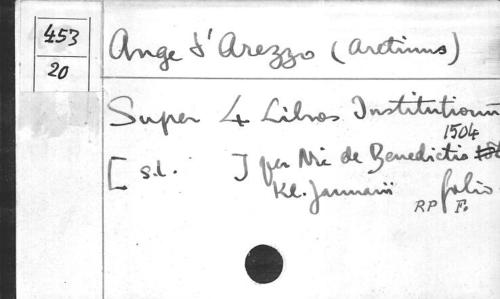 453
20
Ange d'Arezzo (Aretinus)
Super 4 Libros Institutionum
1504
[ s.l. ] per Nic de Benedictis
Kl. Januarii folio
RP F.